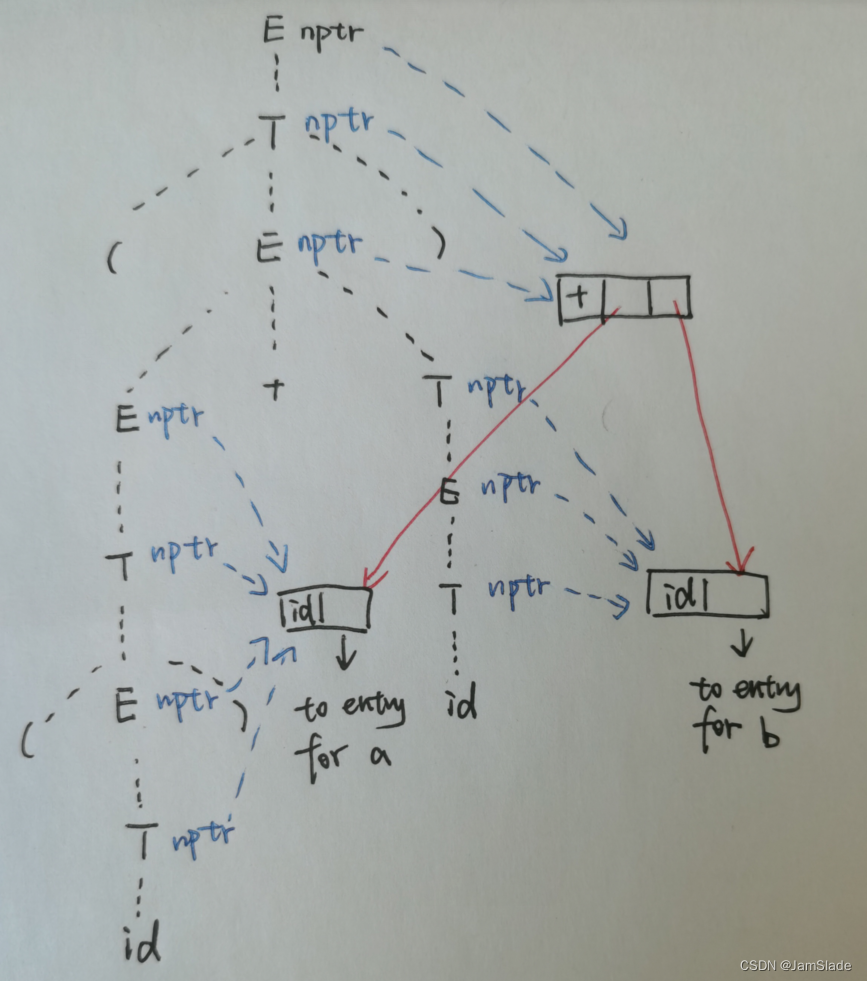 E nptr
T nptr
( E nptr )
+
E nptr
T nptr
E nptr
T nptr
T nptr
+
id
id
to entry
for a
id
id
to entry
for b
( E nptr )
T nptr
id
CSDN @JamSlade